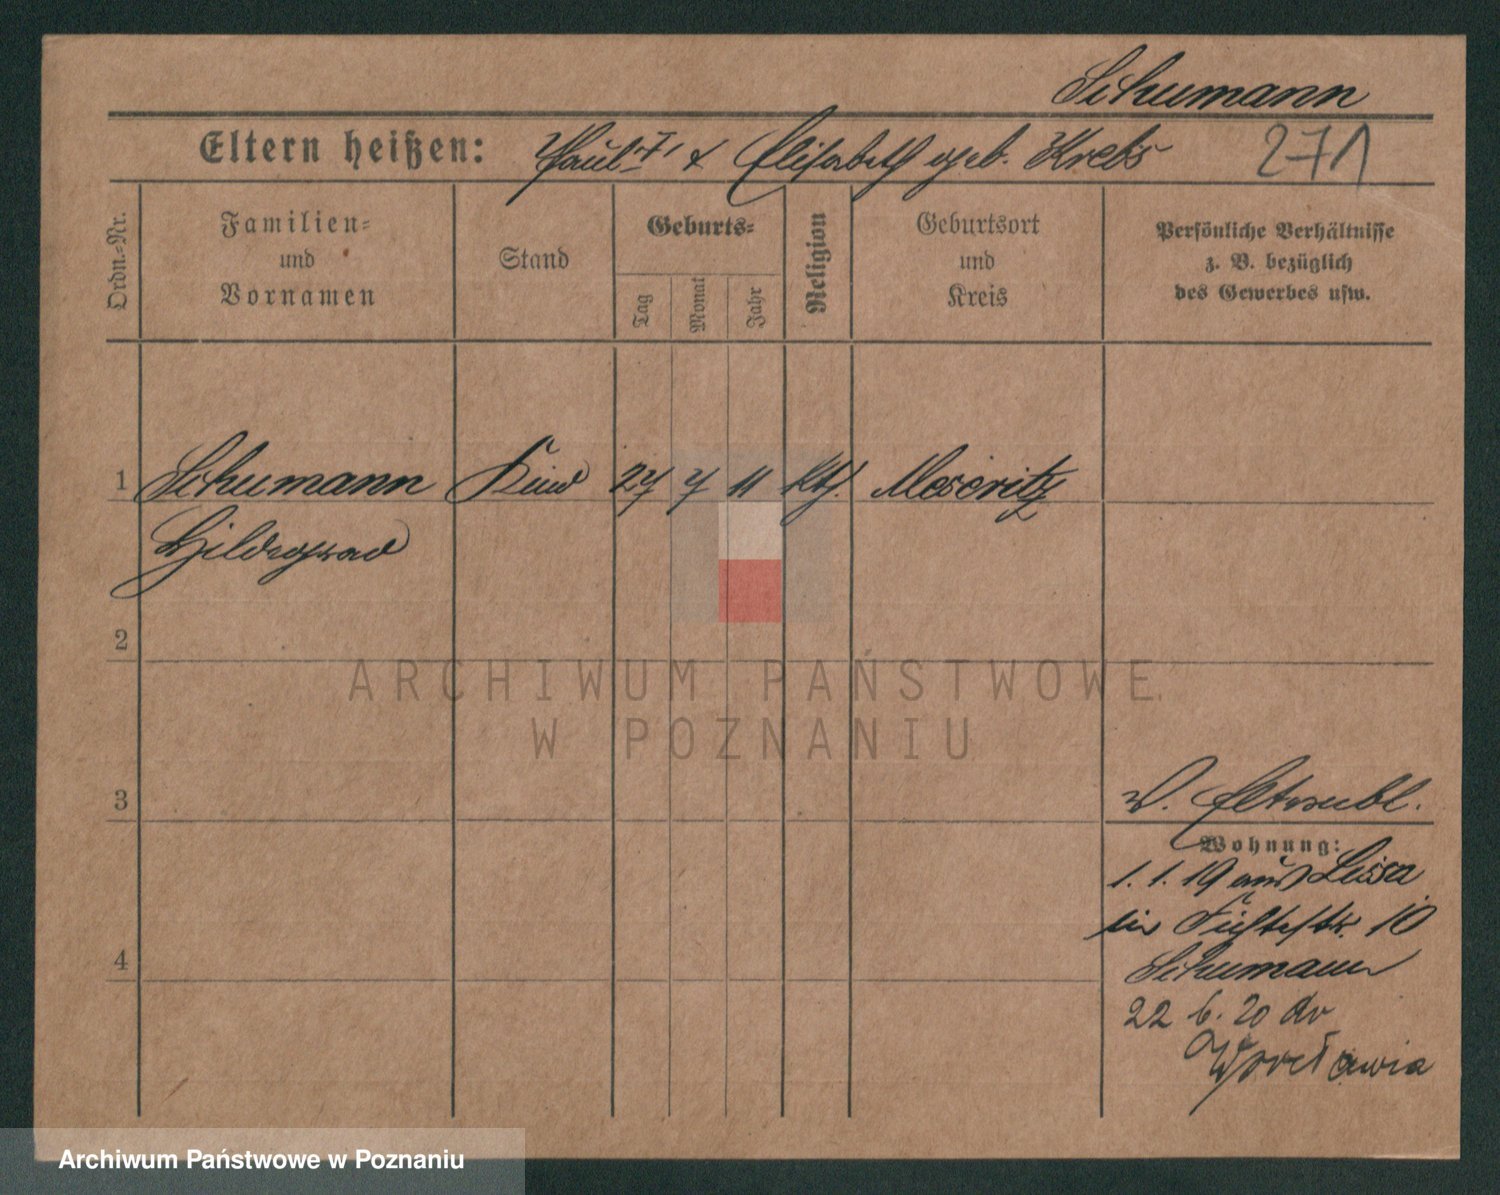 Schumann
Eltern heißen: Paul & Elisabeth geb. Krebs
271
Ordn.-Nr.
Familien-
und
Vornamen
Stand
Geburts-
Tag
Monat
Jahr
Religion
Geburtsort
und
Kreis
Persönliche Verhältnisse
z. B. bezüglich
des Gewerbes usw.
1 Schumann Kind 27 7 11 kth. Meseritz
Hildegard
2
3
4
Wohnung:
1.1.19 aus Lissa
in Fichtestr. 10
Schumann
22 6. 20 do
Wrocławia
ARCHIWUM PAŃSTWOWE
W POZNANIU
Archiwum Państwowe w Poznaniu